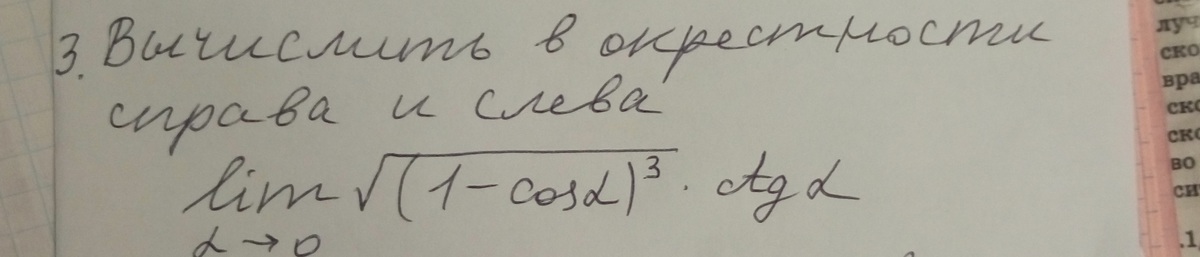 3. Вычислить в окрестности
справа и слева
lim √(1-cosα)³ · ctgα
α→0
луч
ско
вра
ско
ско
во
си
.1